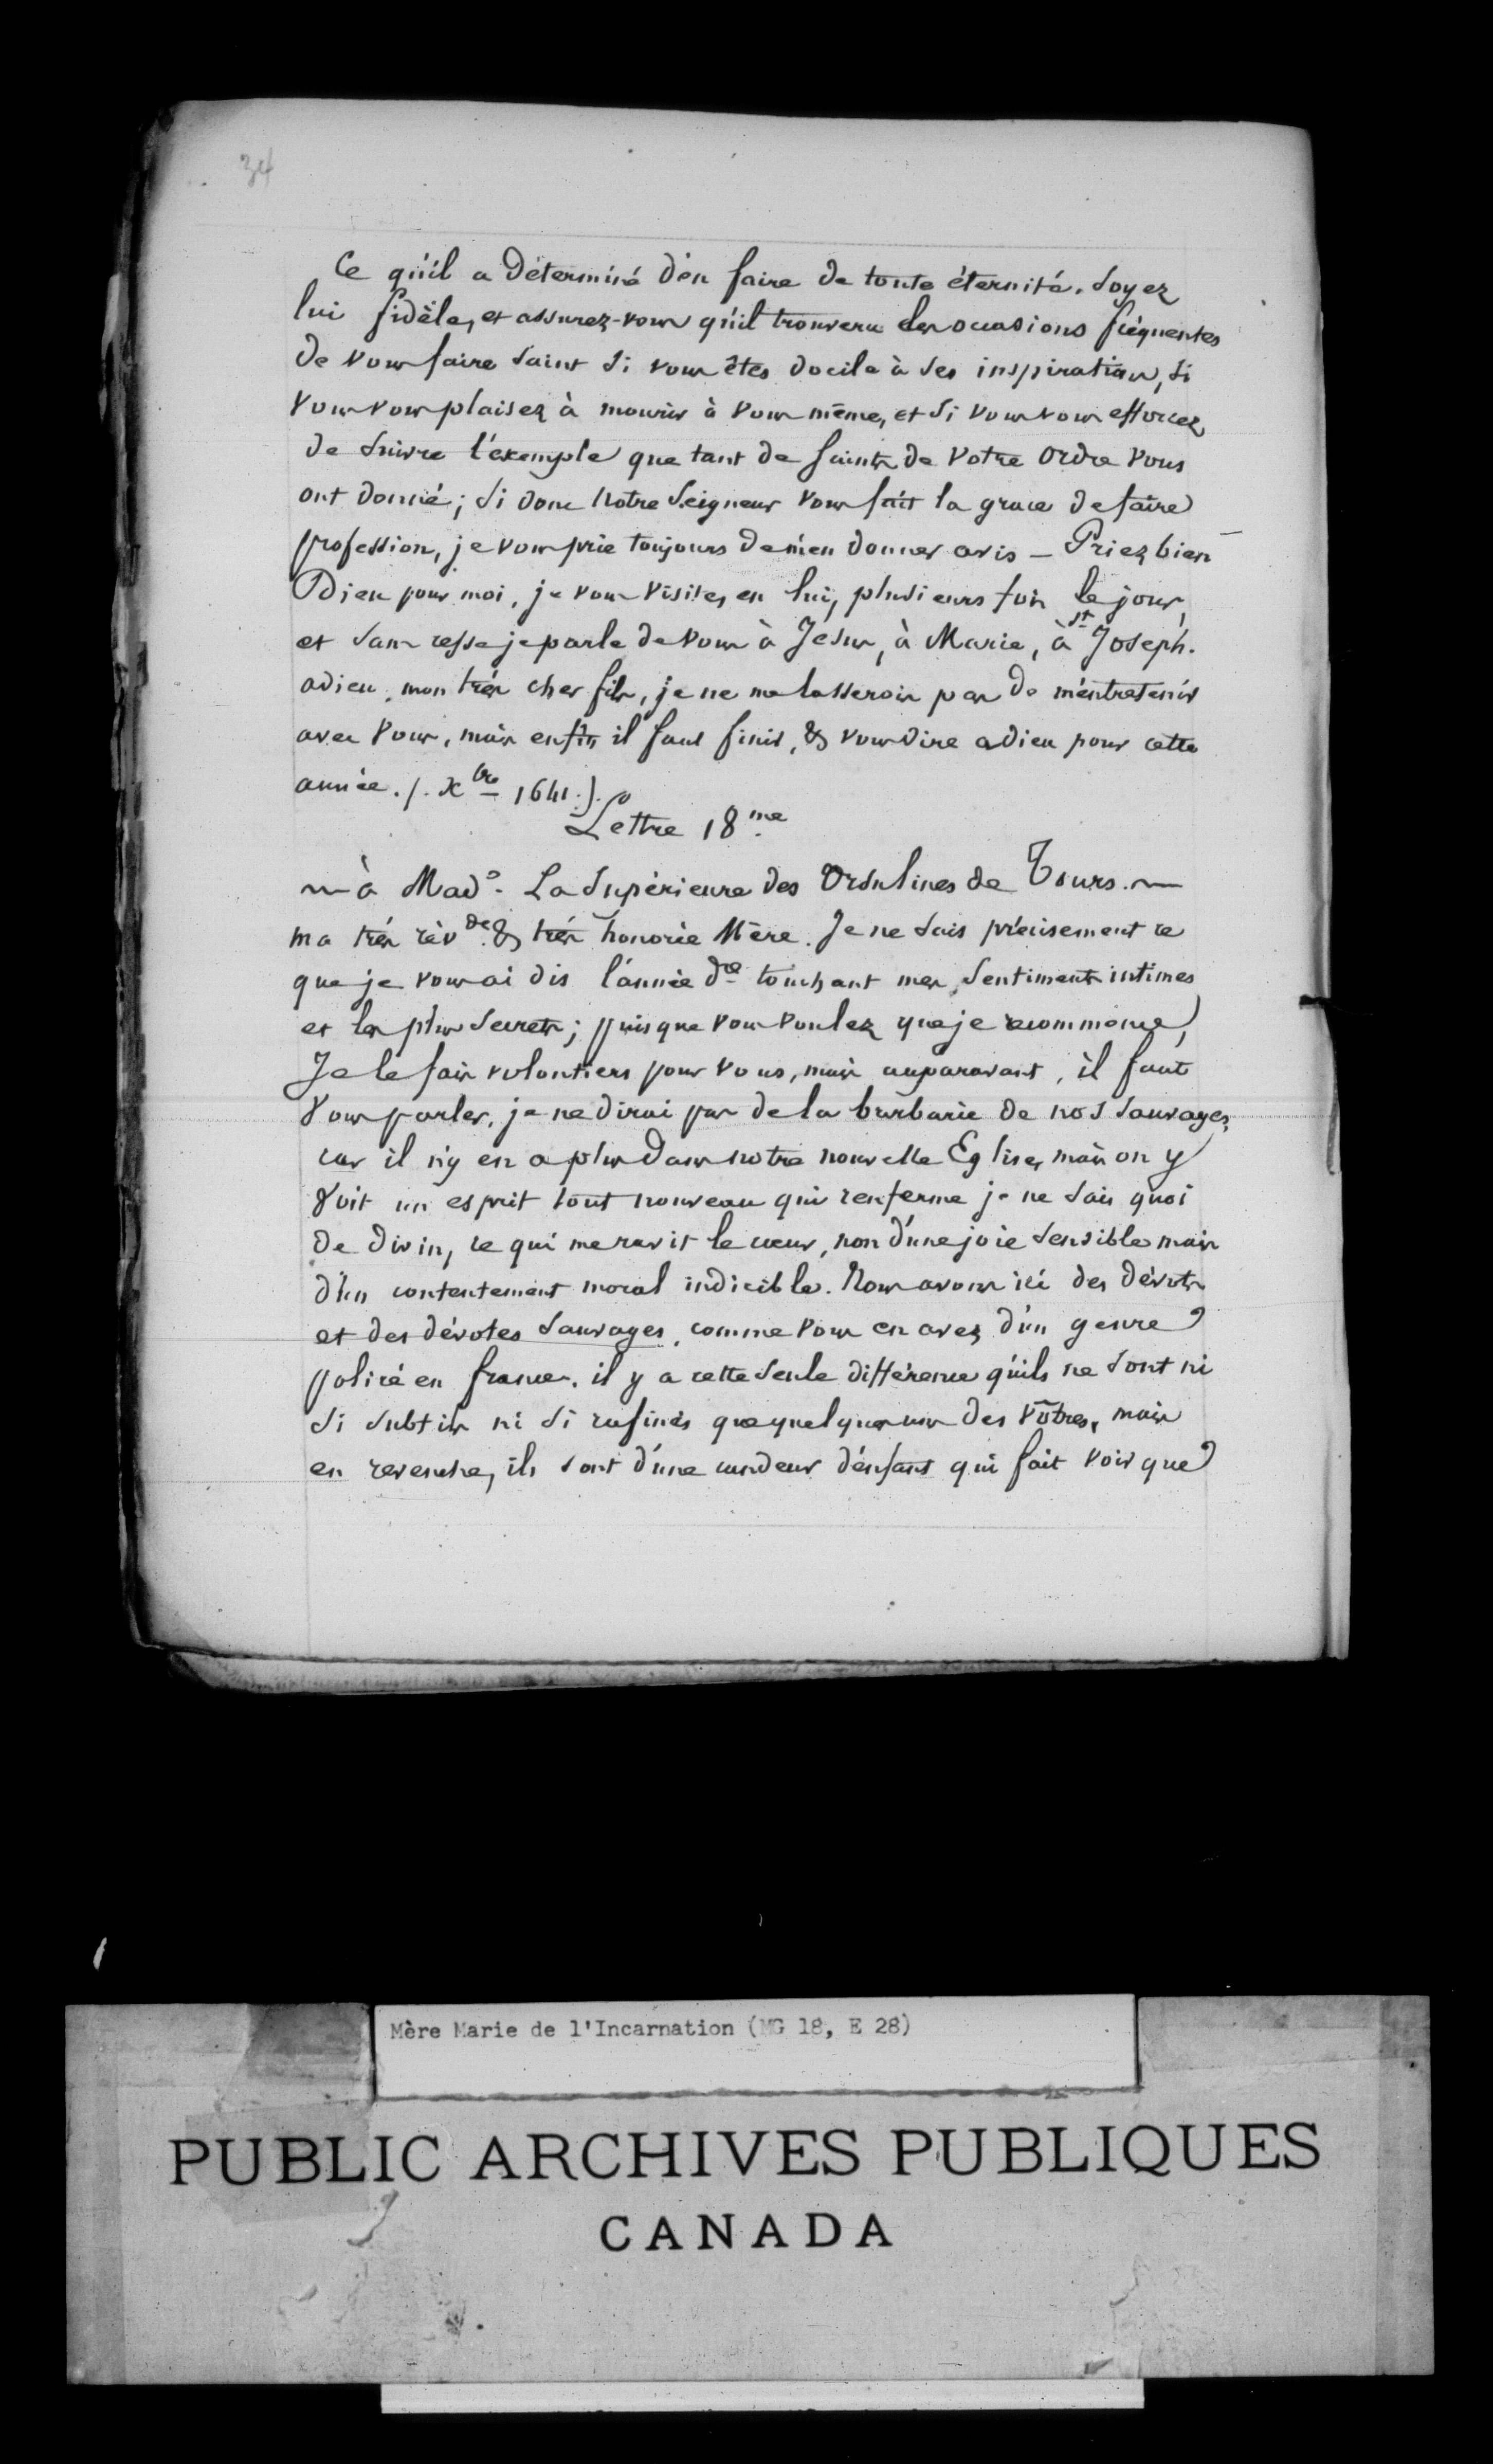 34
Ce qu'il a déterminé d'en faire de toute éternité. Soyez
lui fidèle, et assurez-vous qu'il trouvera des occasions fréquentes
de vous faire saint si vous êtes docile à ses inspirations, si
vous vous plaisez à mourir à vous même, et si vous vous efforcez
de suivre l'exemple que tant de saints de votre ordre vous
ont donné; si donc Notre Seigneur vous fait la grace de faire
profession, je vous prie toujours de m'en donner avis — Priez bien
Dieu pour moi, je vous visite, en lui, plusieurs fois le jour,
et sans cesse je parle de vous à Jésus, à Marie, à St Joseph.
adieu, mon très cher fils, je ne me lasserois pas de m'entretenir
avec vous, mais enfin il faut finir, & vous dire adieu pour cette
année. (. Xbre 1641.).
Lettre 18me
~ à Made. La Supérieure des Ursulines de Tours. ~
ma très révde. & très honorée Mère. Je ne sais précisement ce
que je vous ai dis l'année dre touchant mes sentiments intimes
et les plus secrets; puisque vous voulez que je recommence,
Je le fais volontiers pour vous, mais auparavant, il faut
vous parler, je ne dirai pas de la barbarie de nos sauvages,
car il n'y en a plus dans notre nouvelle Eglise, mais on y
voit un esprit tout nouveau qui renferme je ne sais quoi
de divin, ce qui me ravit le cœur, non d'une joie sensible mais
d'un contentement moral indicible. Nous avons ici des dévots
et des dévotes sauvages, comme vous en avez d'un genre
policé en france. il y a cette seule différence qu'ils ne sont ni
si subtils ni si rafinés que quelques uns des vôtres, mais
en revenche, ils sont d'une candeur d'enfant qui fait voir que
Mère Marie de l'Incarnation (MG 18, E 28)
PUBLIC ARCHIVES PUBLIQUES
CANADA